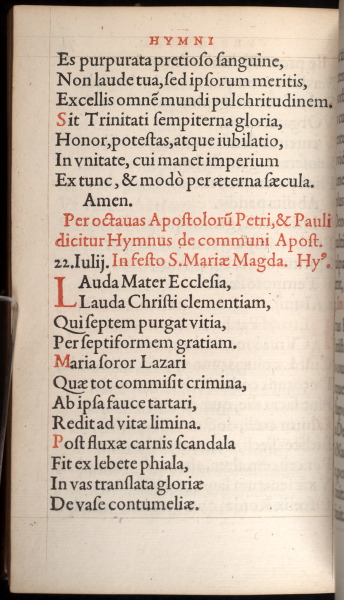 HYMNI
Es purpurata pretioſo ſanguine,
Non laude tua, ſed ipſorum meritis,
Excellis omnẽ mundi pulchritudinem.
Sit Trinitati ſempiterna gloria,
Honor, poteſtas, atque iubilatio,
In vnitate, cui manet imperium
Ex tunc, & modò per æterna ſæcula.
Amen.
Per octauas Apoſtolorũ Petri, & Pauli
dicitur Hymnus de communi Apoſt.
22. Iulij. In feſto S. Mariæ Magda. Hyꝰ.
LAuda Mater Eccleſia,
Lauda Chriſti clementiam,
Qui ſeptem purgat vitia,
Per ſeptiformem gratiam.
Maria ſoror Lazari
Quæ tot commiſit crimina,
Ab ipſa fauce tartari,
Redit ad vitæ limina.
Poſt fluxæ carnis ſcandala
Fit ex lebete phiala,
In vas tranſlata gloriæ
De vaſe contumeliæ.